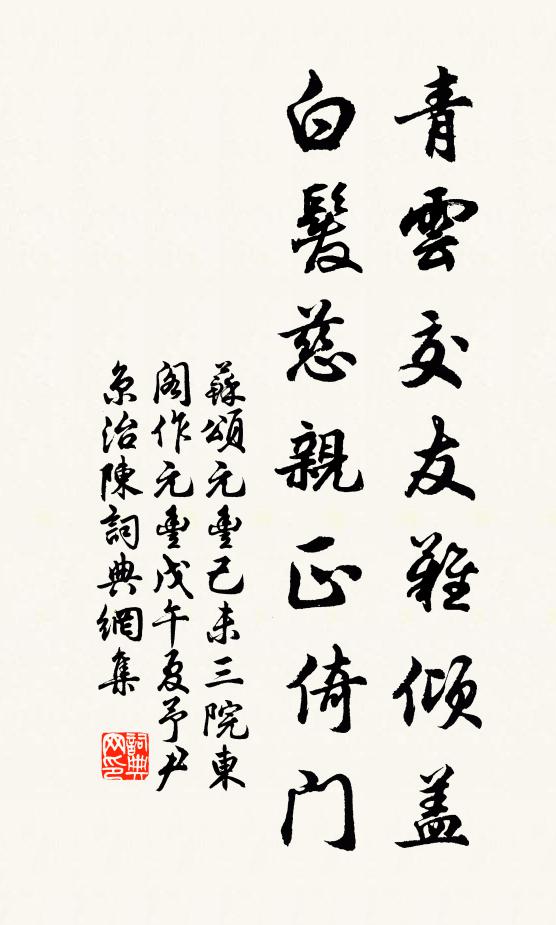 青雲交友難傾盖
白髮慈親正倚門
蘇頌元豐己未三院東
閣作元豐戊午夏予尹
京治陳詞典網集
詞典
网印